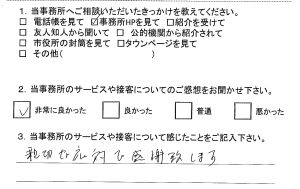 1. 当事務所へご相談いただいたきっかけを教えてください。
□ 電話帳を見て ☑事務所HPを見て □紹介を受けて
□ 友人知人から聞いて □ 公的機関から紹介されて
□ 市役所の封筒を見て □タウンページを見て
□ その他( )
2. 当事務所のサービスや接客についてのご感想をお聞かせ下さい。
☑ 非常に良かった □ 良かった □ 普通 □ 悪かった
3. 当事務所のサービスや接客について感じたことをご記入下さい。
親切な応対で感謝致します